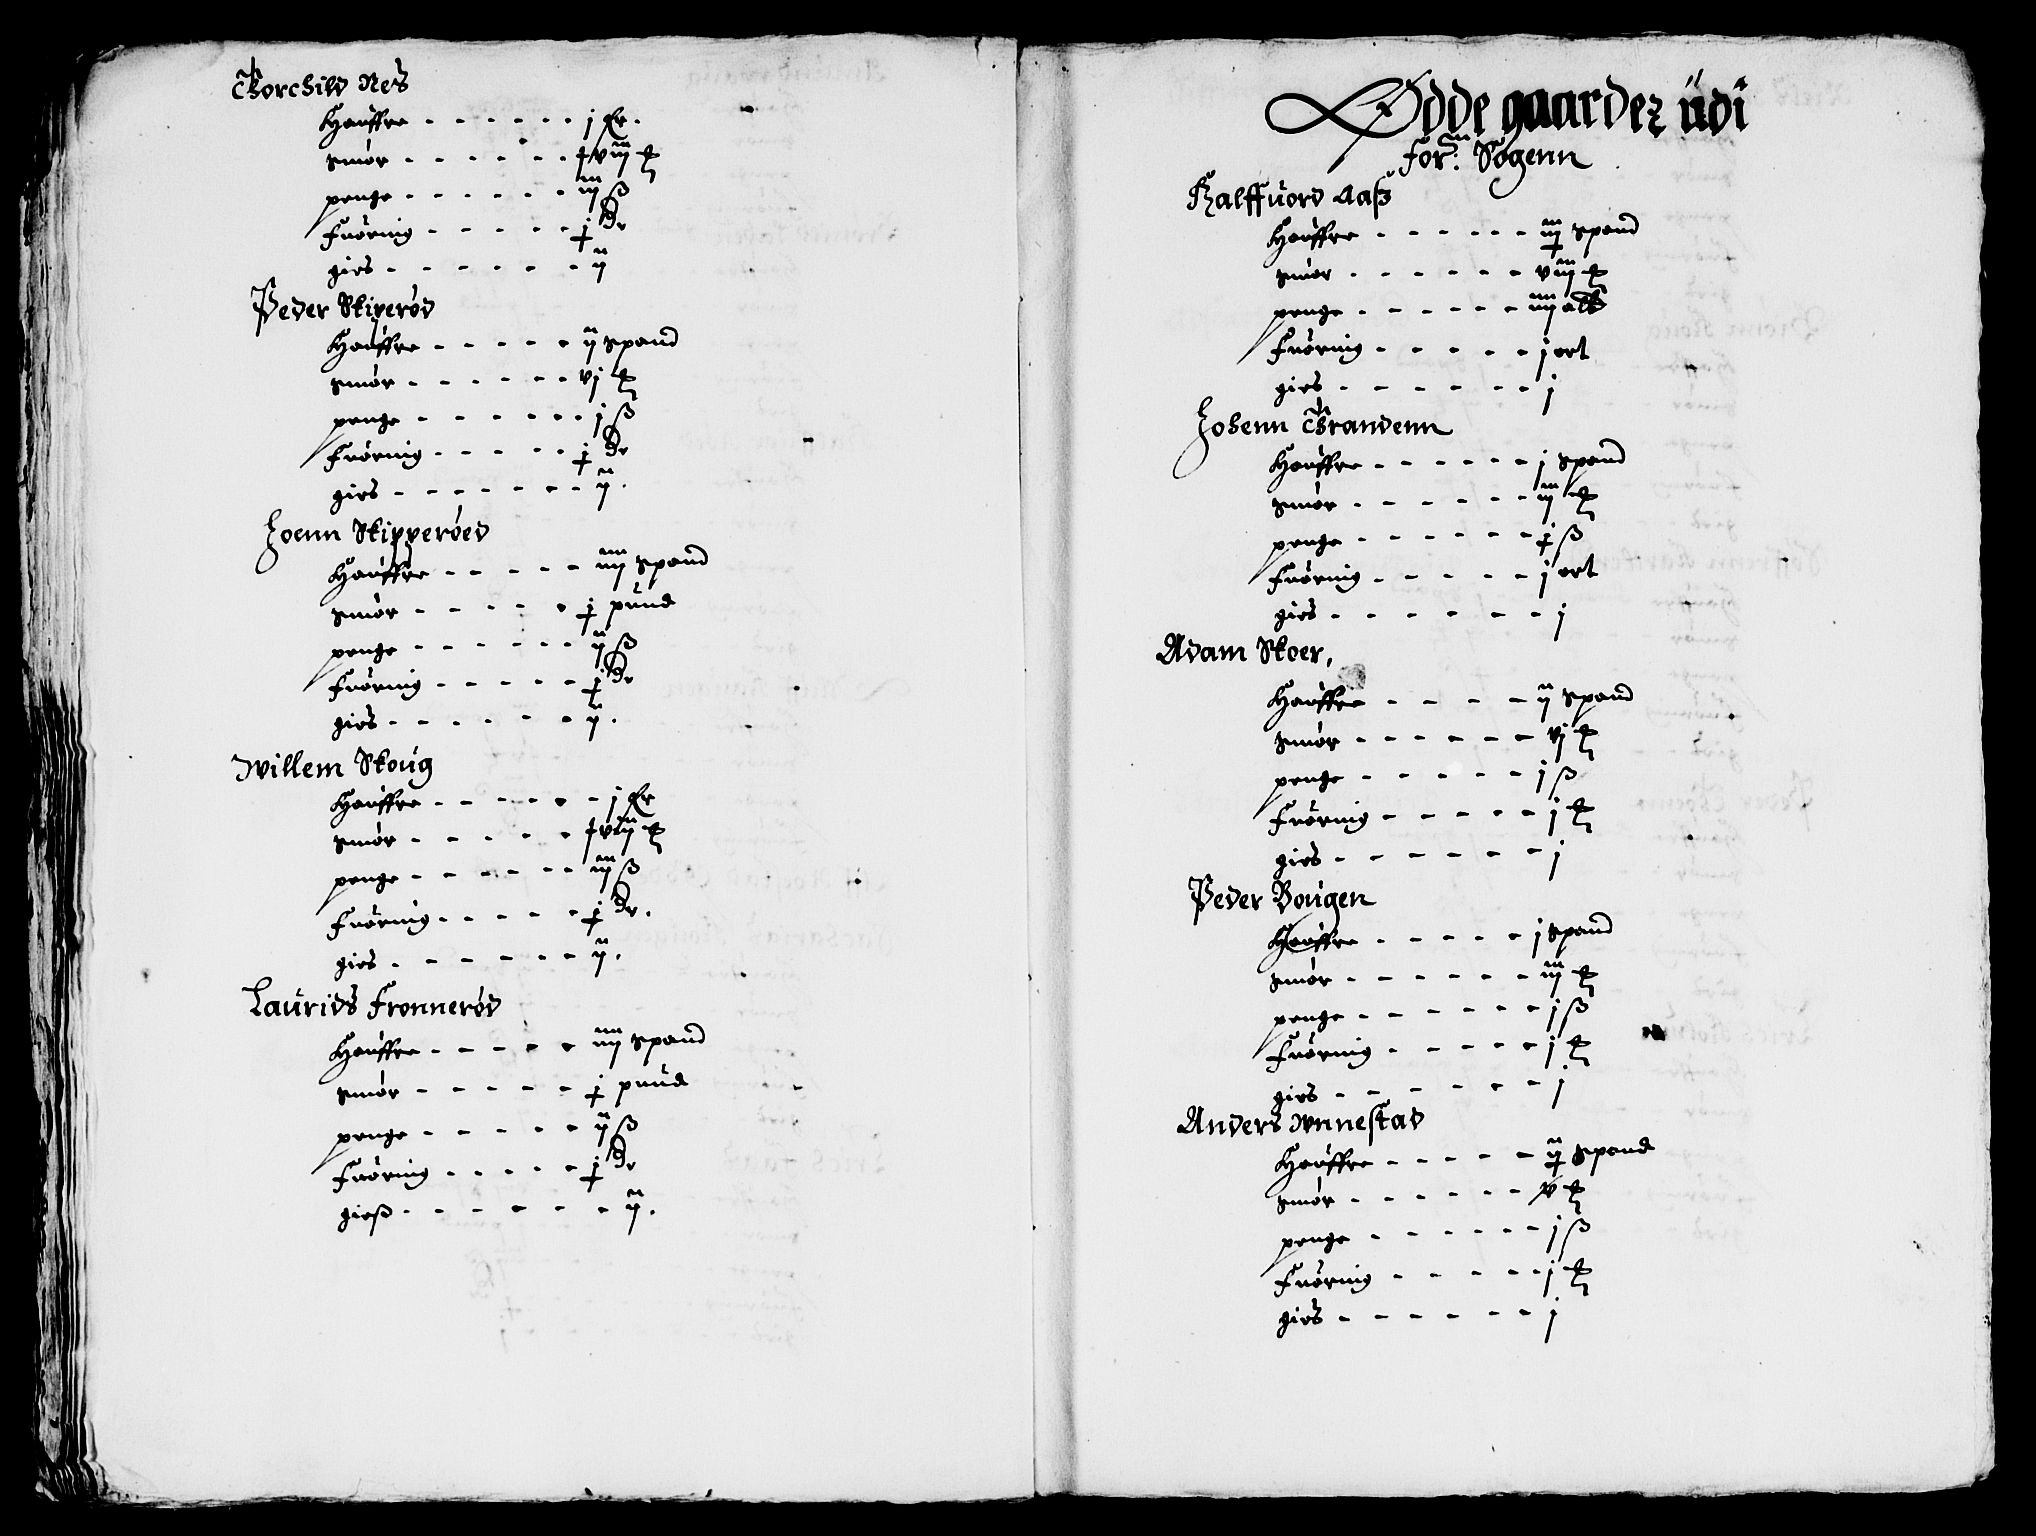 Torchild Nes
Hauffre - - - - - - j
smør - - - - - - viij ℔
penge - - - - - - iij ß
Fuøring - - - - - j Dr
gies - - - - - - ij
Peder Skiperød
Hauffre - - - - - ij spand
smør - - - - - - vj ℔
penge - - - - - - j ß
Fuøring - - - - - j Dr
gies - - - - - - - ij.
Joenn Skipperøed
Hauffre - - - - - iiij spand
smør - - - - - j pund
penge - - - - - - ij ß
Fuøring - - - - - j Dr
gies - - - - - - ij.
Willem Skoug
Hauffre - - - - - - j
smør - - - - - viij ℔
penge - - - - - - iiij ß
Fuøring - - - - - j Dr.
gies - - - - - - ij.
Laurids Fronnerød
Hauffre - - - - - iiij spand
smør - - - - - j pund
penge - - - - - ij ß
Fuøring - - - - - j Dr
gieß - - - - - - ij.
Ødde gaarder udi
for:ne Sogenn
Halffuord Aaß
Hauffre - - - - - - iij spand
smør - - - - - - viij ℔
penge - - - - - - iiij alb
Fuøring - - - - - j ort
gies - - - - - - j
Johenn Trandenn
Hauffre - - - - - - j spand
smør - - - - - - iij ℔
penge - - - - - - j ß
Fuøring - - - - - j ort
gies - - - - - - - j
Adam Skoer,
Hauffre - - - - ij spand
smør - - - - - - vj ℔
penge - - - - - j ß
Fuøring - - - - - j ℔
gies - - - - - - j
Peder Bougen
Hauffre - - - - - j spand
smør - - - - - - iij ℔
penge - - - - - - j ß
Fuøring - - - - - j ℔
gies - - - - - - j
Anders Wnnestad
Hauffre - - - - - ij spand
smør - - - - - - v ℔
penge - - - - - - j ß
Fuøring - - - - - j ℔
gies - - - - - - j